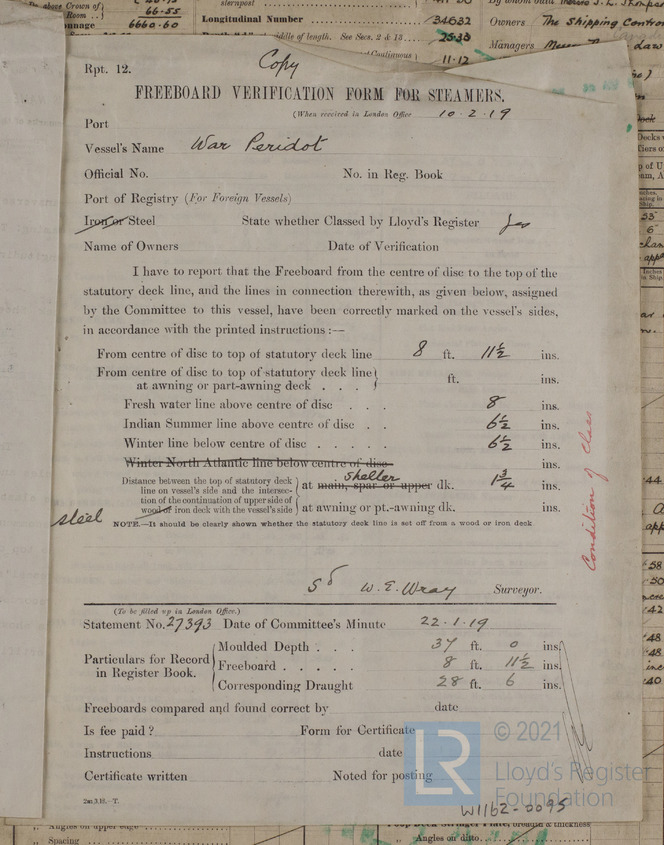 Rpt. 12.
Copy
FREEBOARD VERIFICATION FORM FOR STEAMERS.
(When received in London Office 10-2-19
Port
Vessel's Name War Peridot
Official No. No. in Reg. Book
Port of Registry (For Foreign Vessels)
Iron or Steel State whether Classed by Lloyd's Register Yes
Name of Owners Date of Verification
I have to report that the Freeboard from the centre of disc to the top of the
statutory deck line, and the lines in connection therewith, as given below, assigned
by the Committee to this vessel, have been correctly marked on the vessel's sides,
in accordance with the printed instructions :—
From centre of disc to top of statutory deck line 8 ft. 11½ ins.
From centre of disc to top of statutory deck line
at awning or part-awning deck . . . ft. ins.
Fresh water line above centre of disc . . . 8 ins.
Indian Summer line above centre of disc . . 6½ ins.
Winter line below centre of disc . . . . . 6½ ins.
Winter North Atlantic line below centre of disc ins.
Distance between the top of statutory deck
line on vessel's side and the intersec-
tion of the continuation of upper side of
wood or iron deck with the vessel's side
shelter
at main, spar or upper dk. 1¾ ins.
at awning or pt.-awning dk. ins.
steel
NOTE.—It should be clearly shown whether the statutory deck line is set off from a wood or iron deck
Sd W. E. Wray Surveyor.
(To be filled up in London Office.)
Statement No. 27393 Date of Committee's Minute 22.1.19
Particulars for Record
in Register Book.
Moulded Depth . . . 37 ft. 0 ins.
Freeboard . . . . . 8 ft. 11½ ins.
Corresponding Draught 28 ft. 6 ins.
Freeboards compared and found correct by date
Is fee paid? Form for Certificate
Instructions date
Certificate written Noted for posting
2m,3,18.—T.
W1162-0095
Condition of Class
LR
© 2021
Lloyd's Register
Foundation
Longitudinal Number 34632
66-55
6660-60
25.33
11.12
Owners The Shipping Contro
Managers
Angles on upper edge
Spacing
Angles on ditto